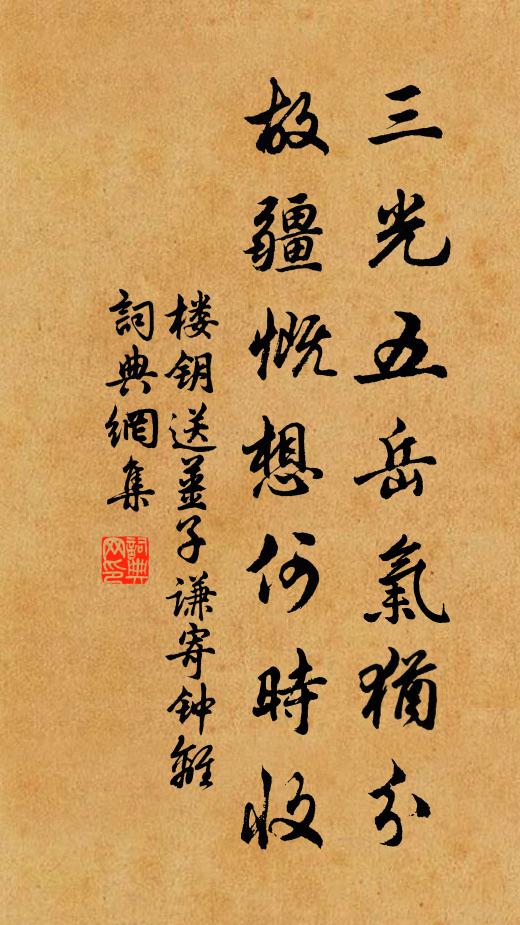 三光五岳氣猶分
故疆慨想何時收
楼钥送姜子谦寄钟離
詞典網集
詞典網印